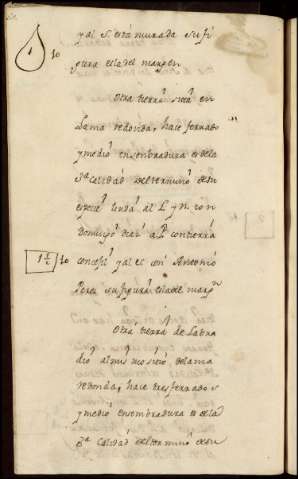 y al S. está murada su fi
10
gura es la del margen
Otra tierra sita en
Lama redonda, hace ferrado
y medio en sembradura es de la
3ª Calidad del termino de su
especie linda al L. y N. con
a P. con tierra
1 1/2 10
y al S. con Antonio
Perez su figura es la del margen
Otra tierra de Labra
dio al mismo sitio de lama
redonda, hace tres ferrados
y medio en sembradura es de la
3ª Calidad del termino de su